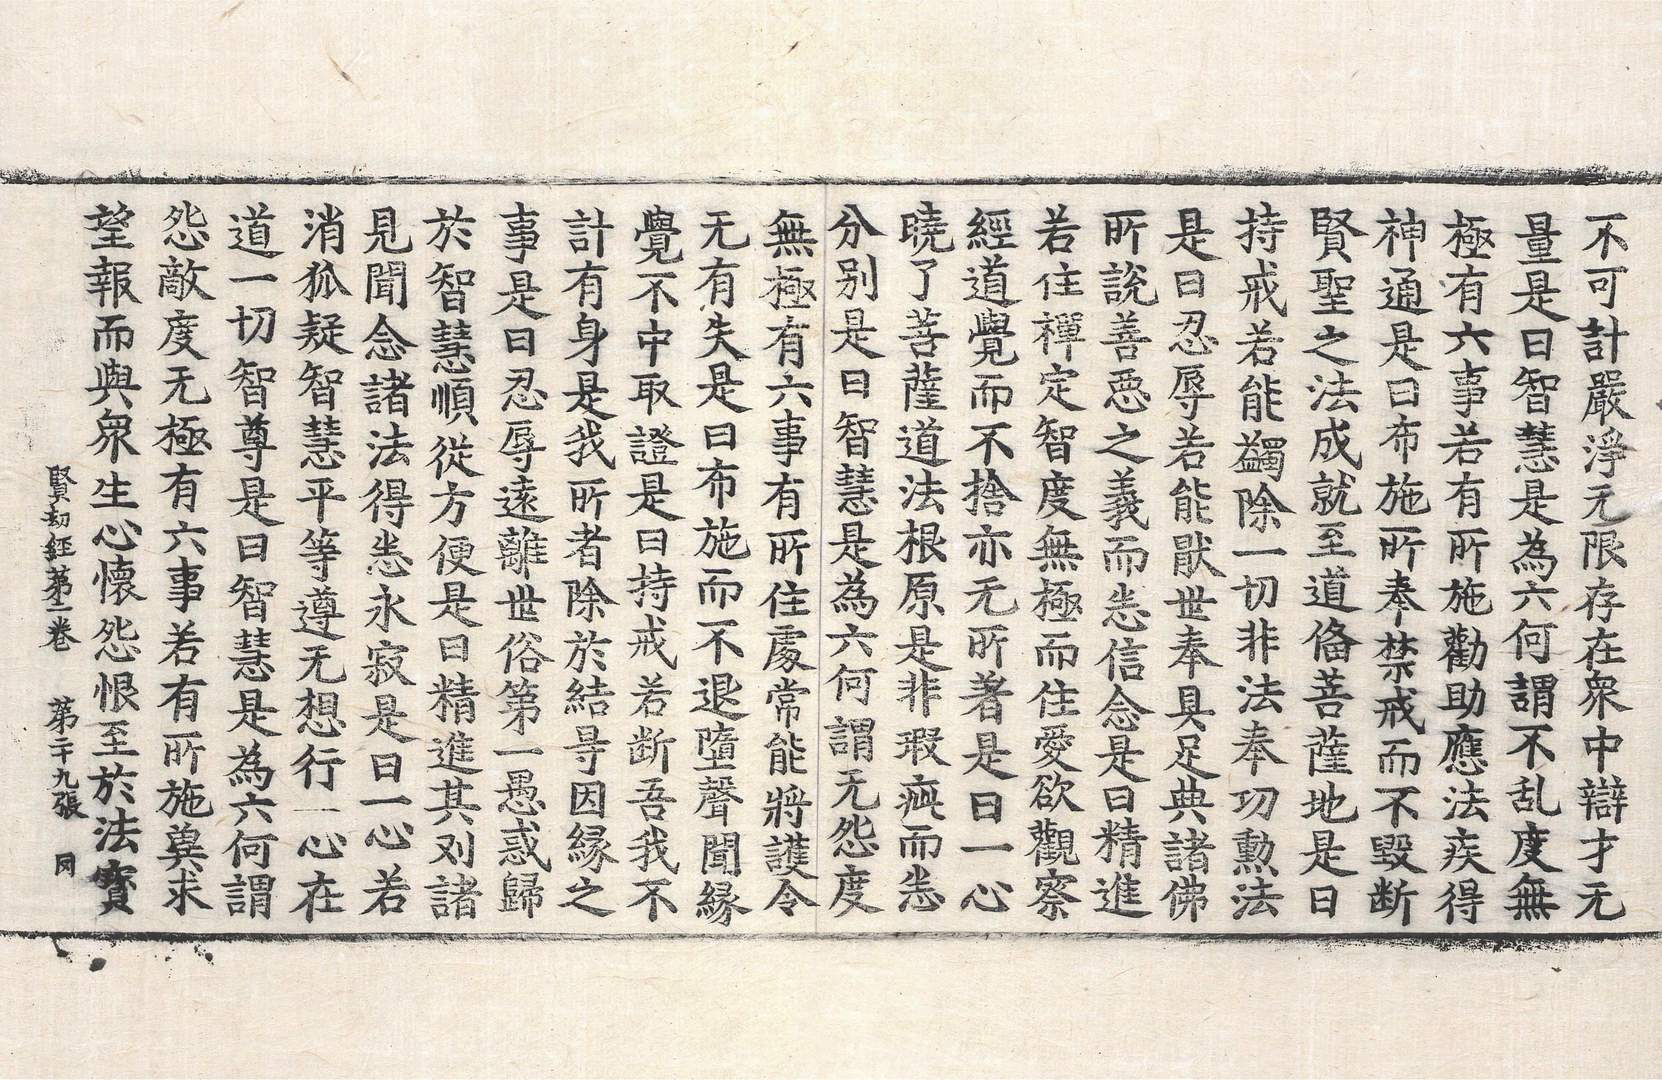 不可計嚴淨无限存在衆中辯才无
量是曰智慧是為六何謂不乱度無
極有六事若有所施勸助應法疾得
神通是曰布施所奉禁戒而不毀断
賢聖之法成就至道俻菩薩地是曰
持戒若能蠲除一切非法奉功勲法
是曰忍辱若能猒世奉具足典諸佛
所說善惡之義而悉信念是曰精進
若住禪定智度無極而住愛欲觀察
經道覺而不捨亦无所著是曰一心
曉了菩薩道法根原是非瑕疵而悉
分别是曰智慧是為六何謂无怨度
無極有六事有所住處常能將護令
无有失是曰布施而不退墮聲聞縁
覺不中取證是曰持戒若断吾我不
計有身是我所者除於結㝵因縁之
事是曰忍辱遠離世俗第一愚惑歸
於智慧順從方便是曰精進其刈諸
見聞念諸法得悉永寂是曰一心若
消狐疑智慧平等遵无想行一心在
道一切智尊是曰智慧是為六何謂
怨敵度无極有六事若有所施奠求
望報而與衆生心懷怨恨至於法寳
賢劫経第二卷 第二十九張 同